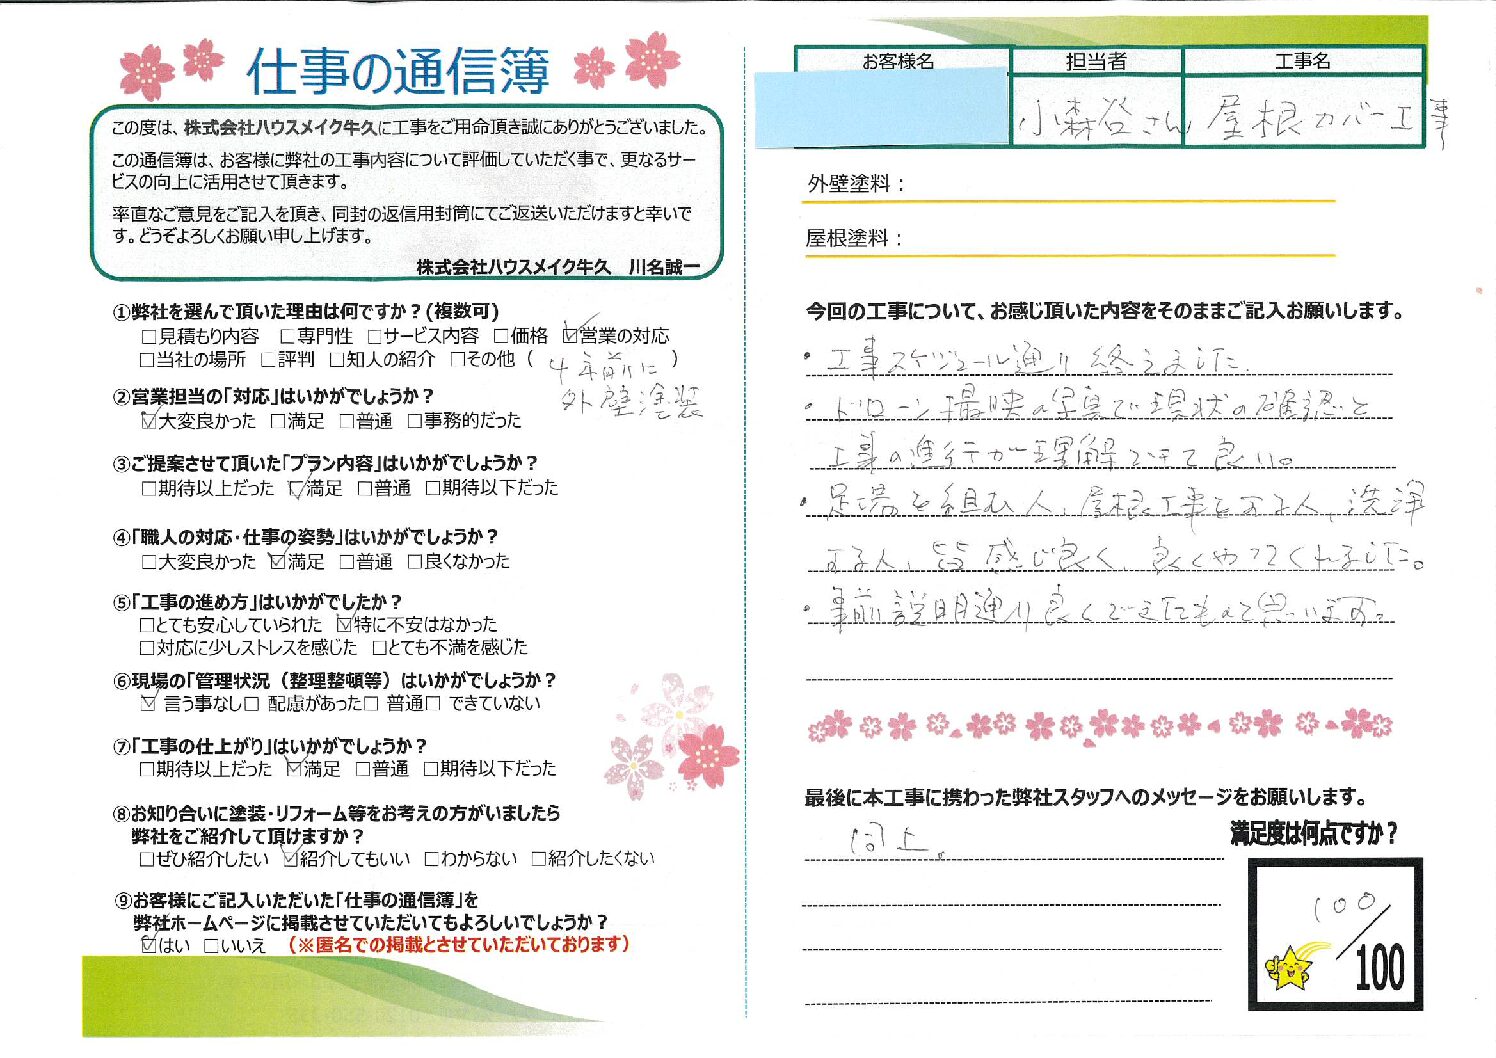 仕事の通信簿
この度は、株式会社ハウスメイク牛久に工事をご用命頂き誠にありがとうございました。
この通信簿は、お客様に弊社の工事内容について評価していただく事で、更なるサー
ビスの向上に活用させて頂きます。
率直なご意見をご記入を頂き、同封の返信用封筒にてご返送いただけますと幸いで
す。どうぞよろしくお願い申し上げます。
株式会社ハウスメイク牛久　川名誠一
①弊社を選んで頂いた理由は何ですか？(複数可)
□見積もり内容　□専門性　□サービス内容　□価格　☑営業の対応
□当社の場所　□評判　□知人の紹介　□その他（4年前に　）
外壁塗装
②営業担当の「対応」はいかがでしょうか？
☑大変良かった　□満足　□普通　□事務的だった
③ご提案させて頂いた「プラン内容」はいかがでしょうか？
□期待以上だった　☑満足　□普通　□期待以下だった
④「職人の対応・仕事の姿勢」はいかがでしょうか？
□大変良かった　☑満足　□普通　□良くなかった
⑤「工事の進め方」はいかがでしたか？
□とても安心していられた　☑特に不安はなかった
□対応に少しストレスを感じた　□とても不満を感じた
⑥現場の「管理状況（整理整頓等）はいかがでしょうか？
☑ 言う事なし□ 配慮があった□ 普通□ できていない
⑦「工事の仕上がり」はいかがでしょうか？
□期待以上だった　☑満足　□普通　□期待以下だった
⑧お知り合いに塗装・リフォーム等をお考えの方がいましたら
弊社をご紹介して頂けますか？
□ぜひ紹介したい　☑紹介してもいい　□わからない　□紹介したくない
⑨お客様にご記入いただいた「仕事の通信簿」を
弊社ホームページに掲載させていただいてもよろしいでしょうか？
☑はい　□いいえ　（※匿名での掲載とさせていただいております）
お客様名　担当者　工事名
小森谷さん　屋根カバー工事
外壁塗料：
屋根塗料：
今回の工事について、お感じ頂いた内容をそのままご記入お願いします。
・工事スケジュール通り終えました。
・ドローン撮映の写真で現状の確認と
工事の進行が理解できて良い。
・足場を組む人、屋根工事をする人、洗浄
する人、皆感じ良く、良くやってくれました。
・事前説明通り良くできたもんと思います。
最後に本工事に携わった弊社スタッフへのメッセージをお願いします。
同上。
満足度は何点ですか？
100/100